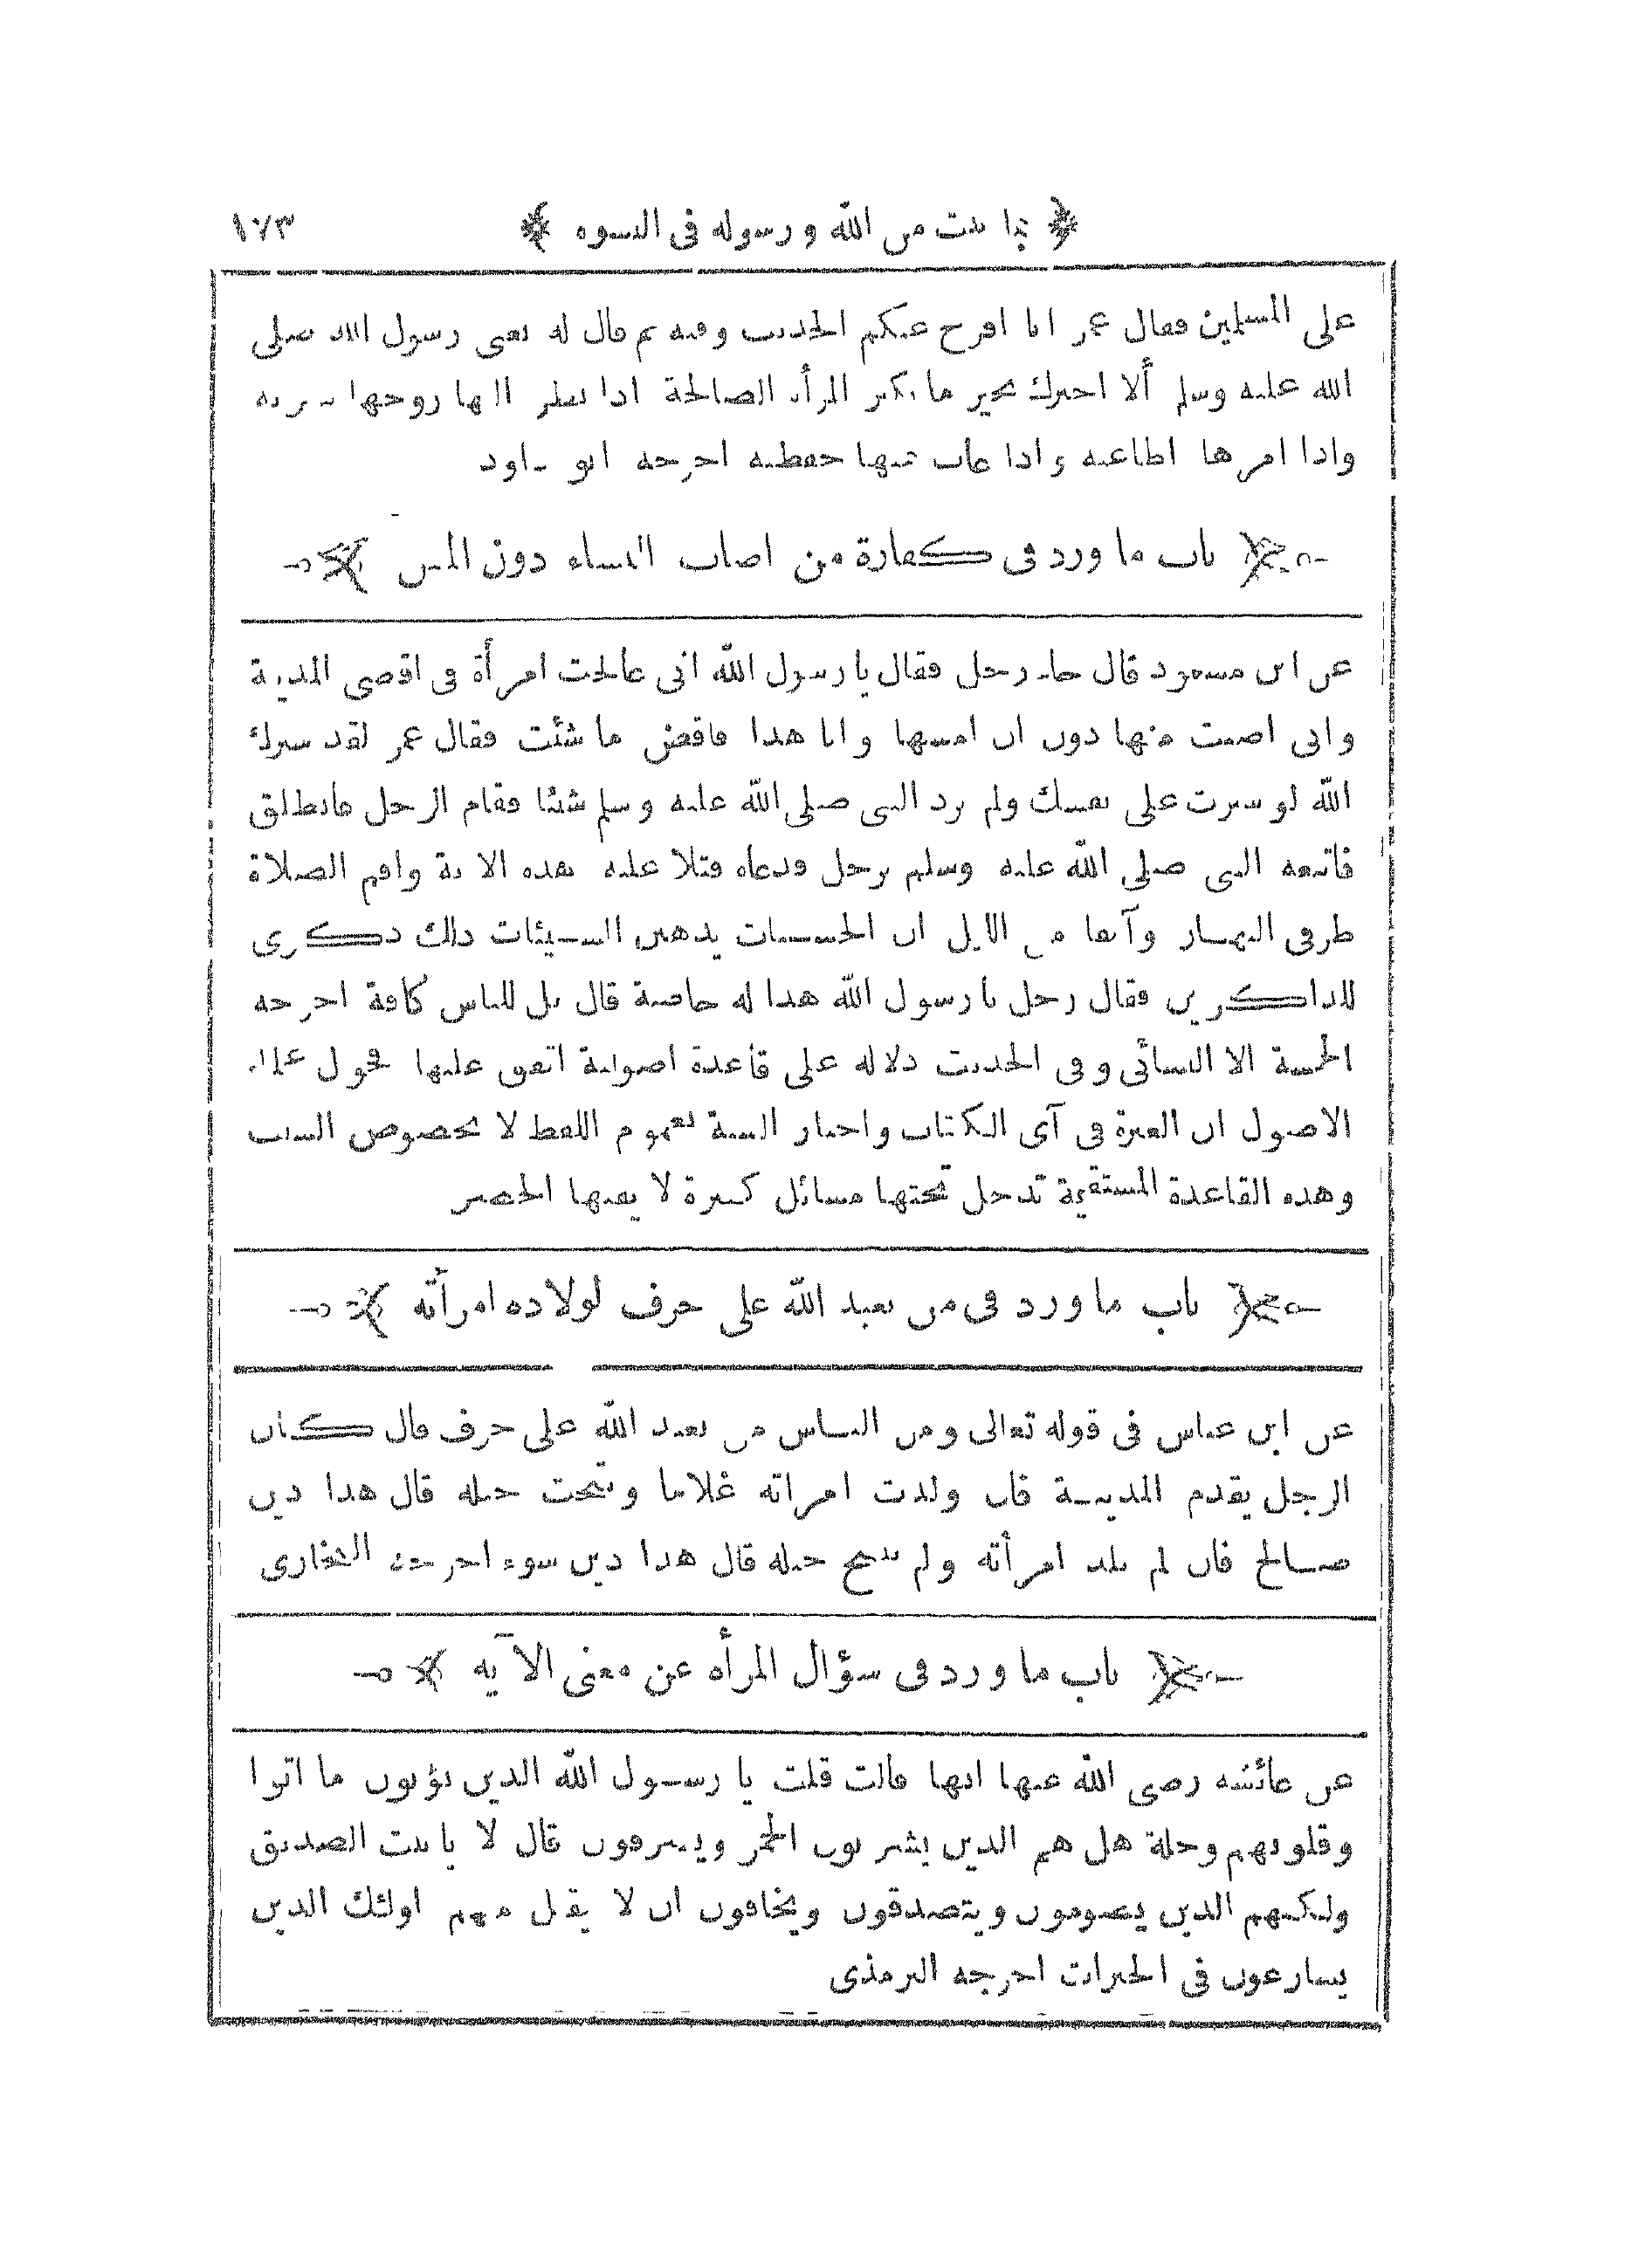 بما ثبت من الله ورسوله فى النسوه ١٧٣
على المسلمين فقال عمر انا افرج عنكم الحديث وفيه ثم قال له يعنى رسول الله صلى
الله عليه وسلم ألا اخبرك بخير ما يكنز المرأة الصالحة اذا نظر اليها زوجها سرته
واذا امرها اطاعته واذا غاب عنها حفظته اخرجه ابو داود
باب ما ورد فى كفارة من اصاب النساء دون المس
عن ابن مسعود قال جاء رجل فقال يا رسول الله انى عالجت امرأة فى اقصى المدينة
وانى اصبت منها دون ان امسها وانا هذا فاقض ما شئت فقال عمر لقد سترك
الله لو سترت على نفسك ولم يرد النبى صلى الله عليه وسلم شيئا فقام الرجل فانطلق
فاتبعه النبى صلى الله عليه وسلم برجل فدعاه فتلا عليه هذه الاية واقم الصلاة
طرفى النهار وزلفا من الليل ان الحسنات يذهبن السيئات ذلك ذكرى
للذاكرين فقال رجل يا رسول الله هذا له خاصة قال بل للناس كافة اخرجه
الخمسة الا النسائى وفى الحديث دلاله على قاعدة اصولية اتفق عليها فحول علماء
الاصول ان العبرة فى آى الكتاب واخبار السنة بعموم اللفظ لا بخصوص السبب
وهذه القاعدة المستقيمة تدخل تحتها مسائل كثيرة لا يفيها الحصر
باب ما ورد فى من يعبد الله على حرف لولاده امرأته
عن ابن عباس فى قوله تعالى ومن الناس من يعبد الله على حرف قال كان
الرجل يقدم المدينة فان ولدت امراته غلاما ونتجت خيله قال هذا دين
صالح فان لم تلد امرأته ولم تنتج خيله قال هذا دين سوء اخرجه البخارى
باب ما ورد فى سؤال المرأه عن معنى الآيه
عن عائشه رضى الله عنها انها قالت قلت يا رسول الله الذين يؤتون ما اتوا
وقلوبهم وجلة هل هم الذين يشربون الخمر ويسرقون قال لا يا بنت الصديق
ولكنهم الذين يصومون ويتصدقون ويخافون ان لا يقبل منهم اولئك الذين
يسارعون فى الخيرات اخرجه الترمذى